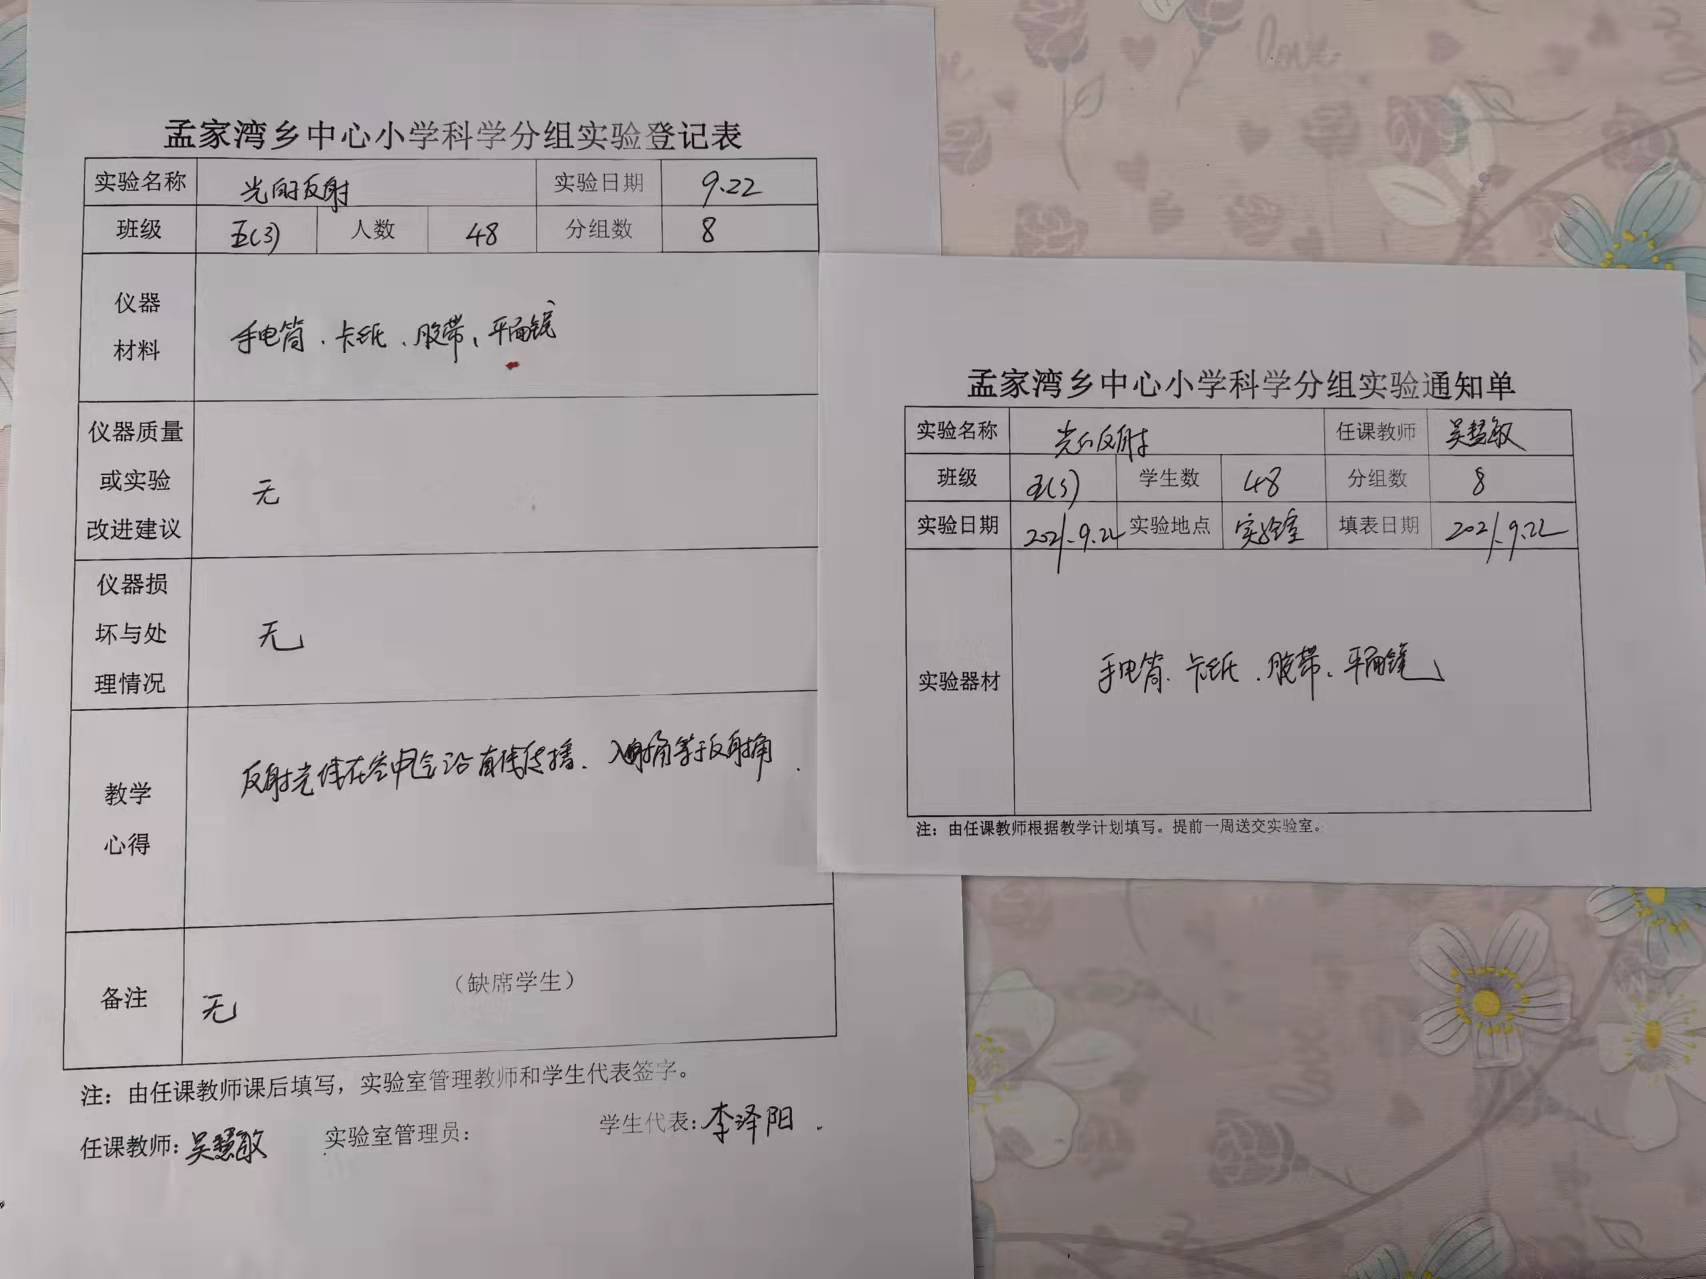 孟家湾乡中心小学科学分组实验登记表
实验名称 光的反射 实验日期 9.22
班级 五(3) 人数 48 分组数 8
仪器
材料
手电筒、卡纸、胶带、平面镜
仪器质量
或实验
改进建议
无
仪器损
坏与处
理情况
无
教学
心得
反射光线在空中会沿直线传播、入射角等于反射角.
备注
(缺席学生)
无
注：由任课教师课后填写，实验室管理教师和学生代表签字。
任课教师: 吴慧敏 实验室管理员: 学生代表: 李泽阳.
孟家湾乡中心小学科学分组实验通知单
实验名称 光的反射 任课教师 吴慧敏
班级 五(3) 学生数 48 分组数 8
实验日期 2021.9.22 实验地点 实验室 填表日期 2021.9.22
实验器材
手电筒、卡纸、胶带、平面镜
注：由任课教师根据教学计划填写。提前一周送交实验室。